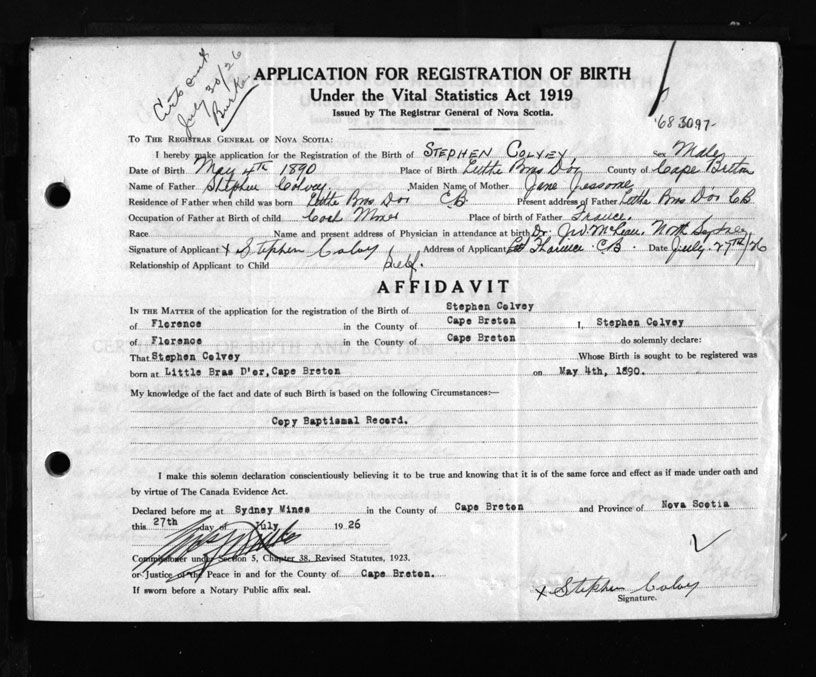 July 30/26
APPLICATION FOR REGISTRATION OF BIRTH
Under the Vital Statistics Act 1919
Issued by The Registrar General of Nova Scotia.
683097
TO THE REGISTRAR GENERAL OF NOVA SCOTIA:
I hereby make application for the Registration of the Birth of STEPHEN COLVEY, Sex Male
Date of Birth May 4TH 1890 Place of Birth Little Bras D'or County of Cape Breton
Name of Father Stephen Colvey. Maiden Name of Mother Jane Jessome
Residence of Father when child was born Little Bras Dor C.B. Present address of Father Little Bras D'or C.B
Occupation of Father at Birth of child Coal Miner Place of birth of Father France.
Race Name and present address of Physician in attendance at birth Dr. J.W. McLean, North Sydney
Signature of Applicant x Stephen Colvey Address of Applicant Florence C.B. Date July 27th/26
Relationship of Applicant to Child Self.
AFFIDAVIT
IN THE MATTER of the application for the registration of the Birth of Stephen Colvey
of Florence in the County of Cape Breton I, Stephen Colvey
of Florence in the County of Cape Breton do solemnly declare:
That Stephen Colvey Whose Birth is sought to be registered was
born at Little Bras D'or, Cape Breton on May 4th, 1890.
My knowledge of the fact and date of such Birth is based on the following Circumstances:—
Copy Baptismal Record.
I make this solemn declaration conscientiously believing it to be true and knowing that it is of the same force and effect as if made under oath and
by virtue of The Canada Evidence Act.
Declared before me at Sydney Mines in the County of Cape Breton and Province of Nova Scotia
this 27th day of July 1926
Commissioner under Section 5, Chapter 38, Revised Statutes, 1923.
or Justice of the Peace in and for the County of Cape Breton.
If sworn before a Notary Public affix seal.
x Stephen Colvey
Signature.